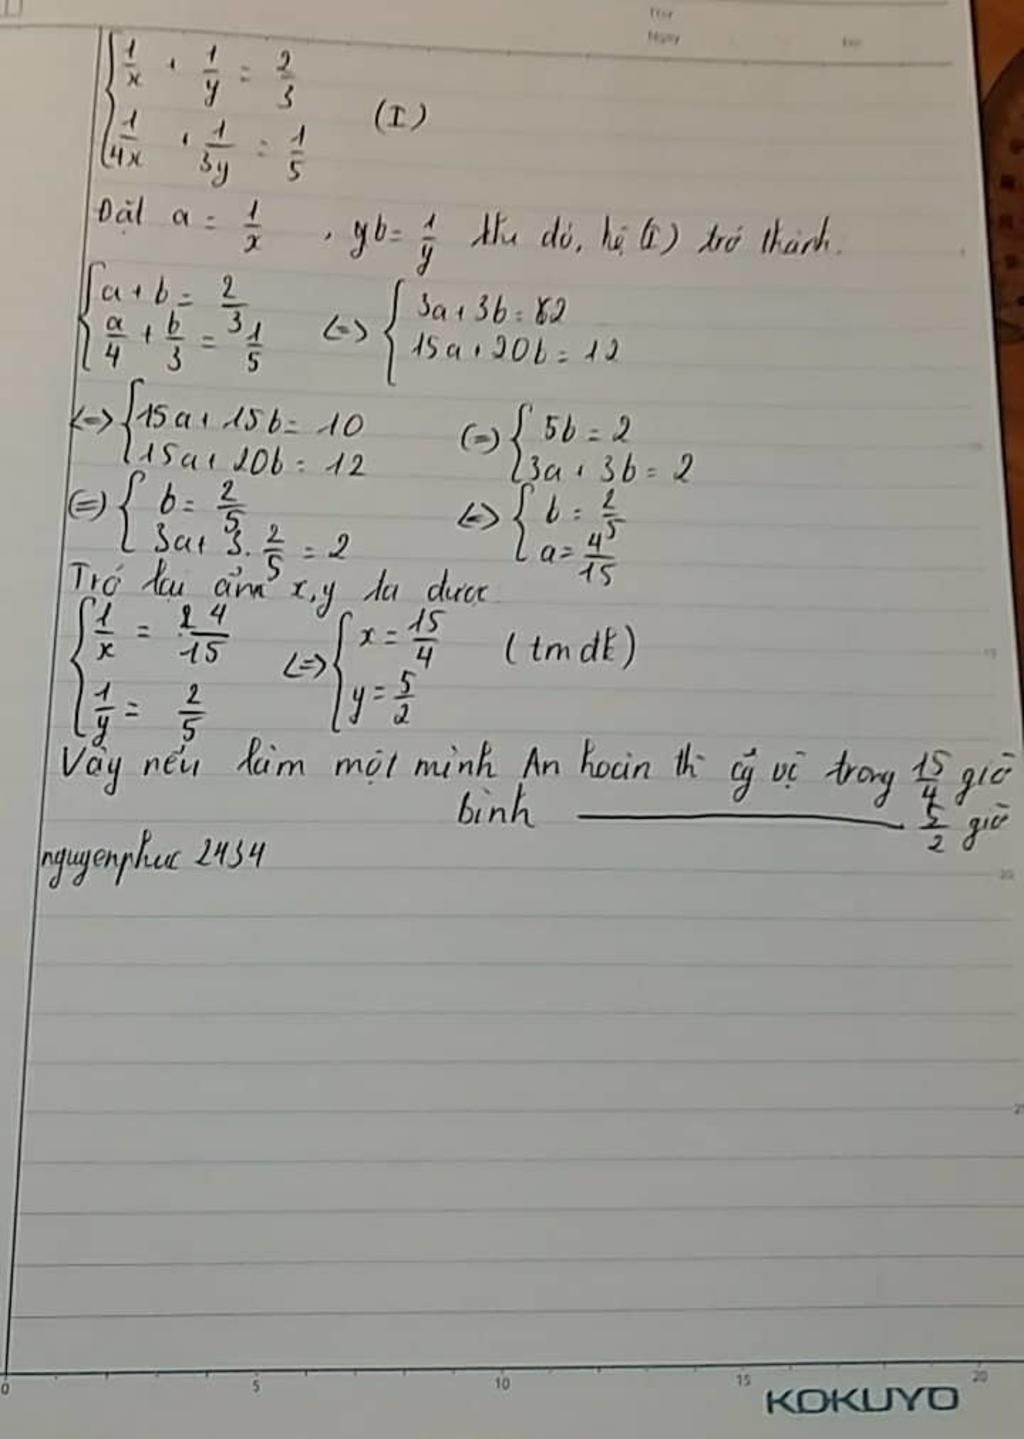 Thứ
Ngày No
1/x + 1/y = 2/3
(I)
1/4x + 1/3y = 1/5
Đặt a = 1/x , yb = 1/y khi đó, hệ (I) trở thành.
{ a + b = 2/3 ; a/4 + b/3 = 1/5 <=> { 3a + 3b = 2 ; 15a + 20b = 12
<=> { 15a + 15b = 10 ; 15a + 20b = 12 (=) { 5b = 2 ; 3a + 3b = 2
(=) { b = 2/5 ; 3a + 3. 2/5 = 2 <=> { b = 2/5 ; a = 4/15
Trở lại ẩn x,y ta được
{ 1/x = 4/15 ; 1/y = 2/5 <=> { x = 15/4 ; y = 5/2 (tmđk)
Vậy nếu làm một mình An hoàn th cv trong 15/4 giờ
bình 5/2 giờ
nguyenphuc 2434
0 5 10 15 20
KOKUYO